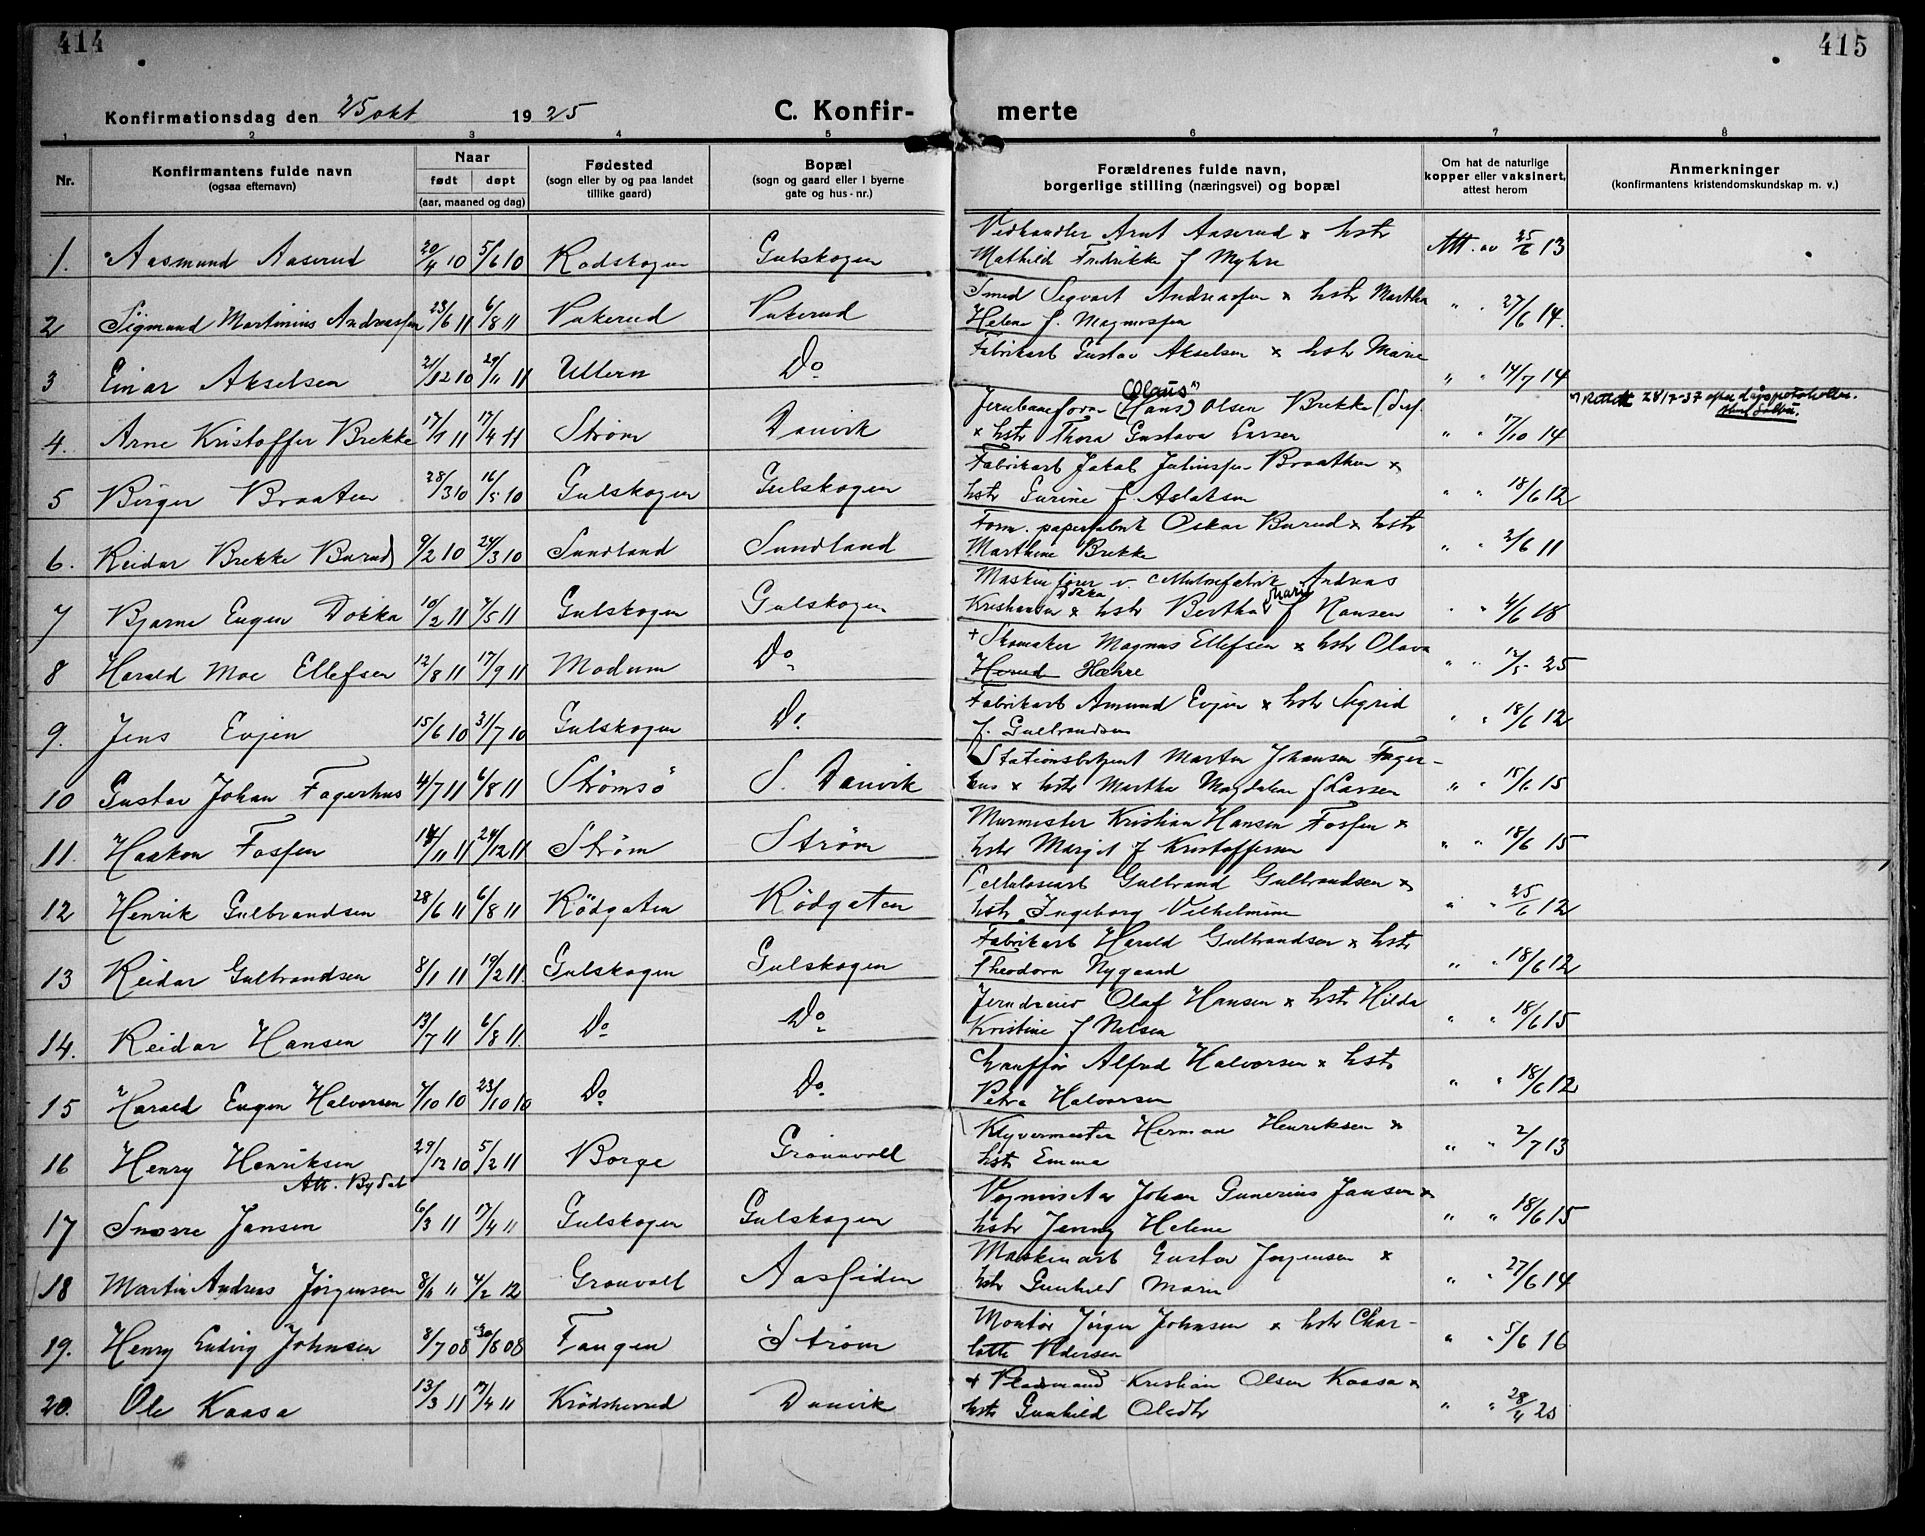 414
415
Konfirmationsdag den 25 okt 1925
C. Konfir-
merte
1 2 3 4 5 6 7 8
Nr.
Konfirmantens fulde navn
(ogsaa efternavn)
Naar
født døpt
(aar, maaned og dag)
Fødested
(sogn eller by og paa landet
tillike gaard)
Bopæl
(sogn og gaard eller i byerne
gate og hus-nr.)
Forældrenes fulde navn,
borgerlige stilling (næringsvei) og bopæl
Om hat de naturlige
kopper eller vaksinert,
attest herom
Anmerkninger
(konfirmantens kristendomskundskap m. v.)
1. Aasmund Aaserud 20/4 10 5/6 10 Kodskogen Gulskogen
Vedhandler Arnt Aaserud x hstr
Mathilde Fredrikke f Myhre
Att. av 25/6 13
2 Sigmund Martinius Andreassen 23/6 11 6/8 11 Vakerud Vakerud
Smed Segvart Andreassen x hstr Martha
Helene f. Magnussen
" " 27/6 14.
3 Einar Akselsen 21/12 10 29/11 11 Ullern Do
Fabrikarb Gustav Akselsen x hstr Marie
" " 14/7 14
4. Arne Kristoffer Brekke 17/1 11 17/4 11 Strøm Danvik
Olaus
Jernbaneform (Hans) Olsen Brekke
x hstr Thora Gustava Larsen
" " 7/10 14
Rettet 28/7-37 efter dåpsprotokollen.
5 Birger Braaten 28/3 10 16/5 10 Gulskogen Gulskogen
Fabrikarb Jakob Juliussen Braathen x
hstr Gurine f. Aslaksen
" " 18/6 12
6. Reidar Brekke Burud 9/2 10 24/3 10 Sundland Sundland
Form. papirfabrik Oskar Burud x hstr
Marthine Brekke
" " 2/6 11
7 Bjarne Eugen Dokka 10/2 11 7/5 11 Gulskogen Gulskogen
Maskinfører v. Cellulosefabrik Andreas
Dokka Marie
Kristiansen x hstr Bertha f Hansen
" " 4/6 18
8 Harald Moe Ellefsen 12/8 11 17/9 11 Modum Do
+ Skomaker Magnus Ellefsen x hstr Olava
Hæhre
" " 12/5 25
9. Jens Evjen 15/6 10 31/7 10 Gulskogen Do
Fabrikarb Amund Evjen x hstr Sigrid
f. Gulbrandsen
" " 18/6 12
10 Gustav Johan Fagerhus 4/7 11 6/8 11 Strømsö S. Danvik
Stationsbetjent Martin Johansen Fager-
hus x hstr Martha Magdalene f Larsen
" " 15/6 15
11. Haakon Fossen 14/11 11 24/12 11 Strøm Strøm
Murmester Kristian Hansen Fossen x
hstr Margit f Kristoffersen
" " 18/6 15
12 Henrik Gulbrandsen 28/6 11 6/8 11 Ködgaten Ködgaten
Cellulosearb Gulbrand Gulbrandsen x
hstr Ingeborg Vilhelmine
" " 25/6 12
13 Reidar Gulbrandsen 8/1 11 19/2 11. Gulskogen Gulskogen
Fabrikarb Harald Gulbrandsen x hstr
Theodora Nygaard
" " 18/6 12
14. Reidar Hansen 13/7 11 6/8 11. Do Do
Jerndreier Olaf Hansen x hstr Hilda
Kristine f Nilsen
" " 18/6 15
15 Harald Eugen Halvorsen 7/10 10 23/10 10 Do Do
Chauffør Alfred Halvorsen x hstr
Petra Halvorsen
" " 18/6 12
16 Henry Henriksen 29/12 10 5/2 11 Borge Grønvoll
Klyvermester Herman Henriksen x
hstr Emma
" " 2/7 13
17 Snorre Jansen 6/3 11 17/4 11 Gulskogen Gulskogen
Vognvisitør Johan Gunerius Jansen x
hstr Jenny Helene
" " 18/6 15
18 Martin Andreas Jørgensen 8/11 11 4/2 12 Grønvoll Aassiden
Maskinarb Gustav Jørgensen x
hstr Gunhild Marie
" " 27/6 14
19. Henry Ludvig Johnsen 8/7 08 30/8 08 Tangen Strøm
Montør Jørgen Johnsen x hstr Char-
lotte Pedersen
" " 5/6 16
20. Ole Kaasa 13/3 11 17/4 11 Krödsherred Danvik
+ Pladsmand Kristian Olsen Kaasa x
hstr Gunhild Olsdtr
" " 28/4 25